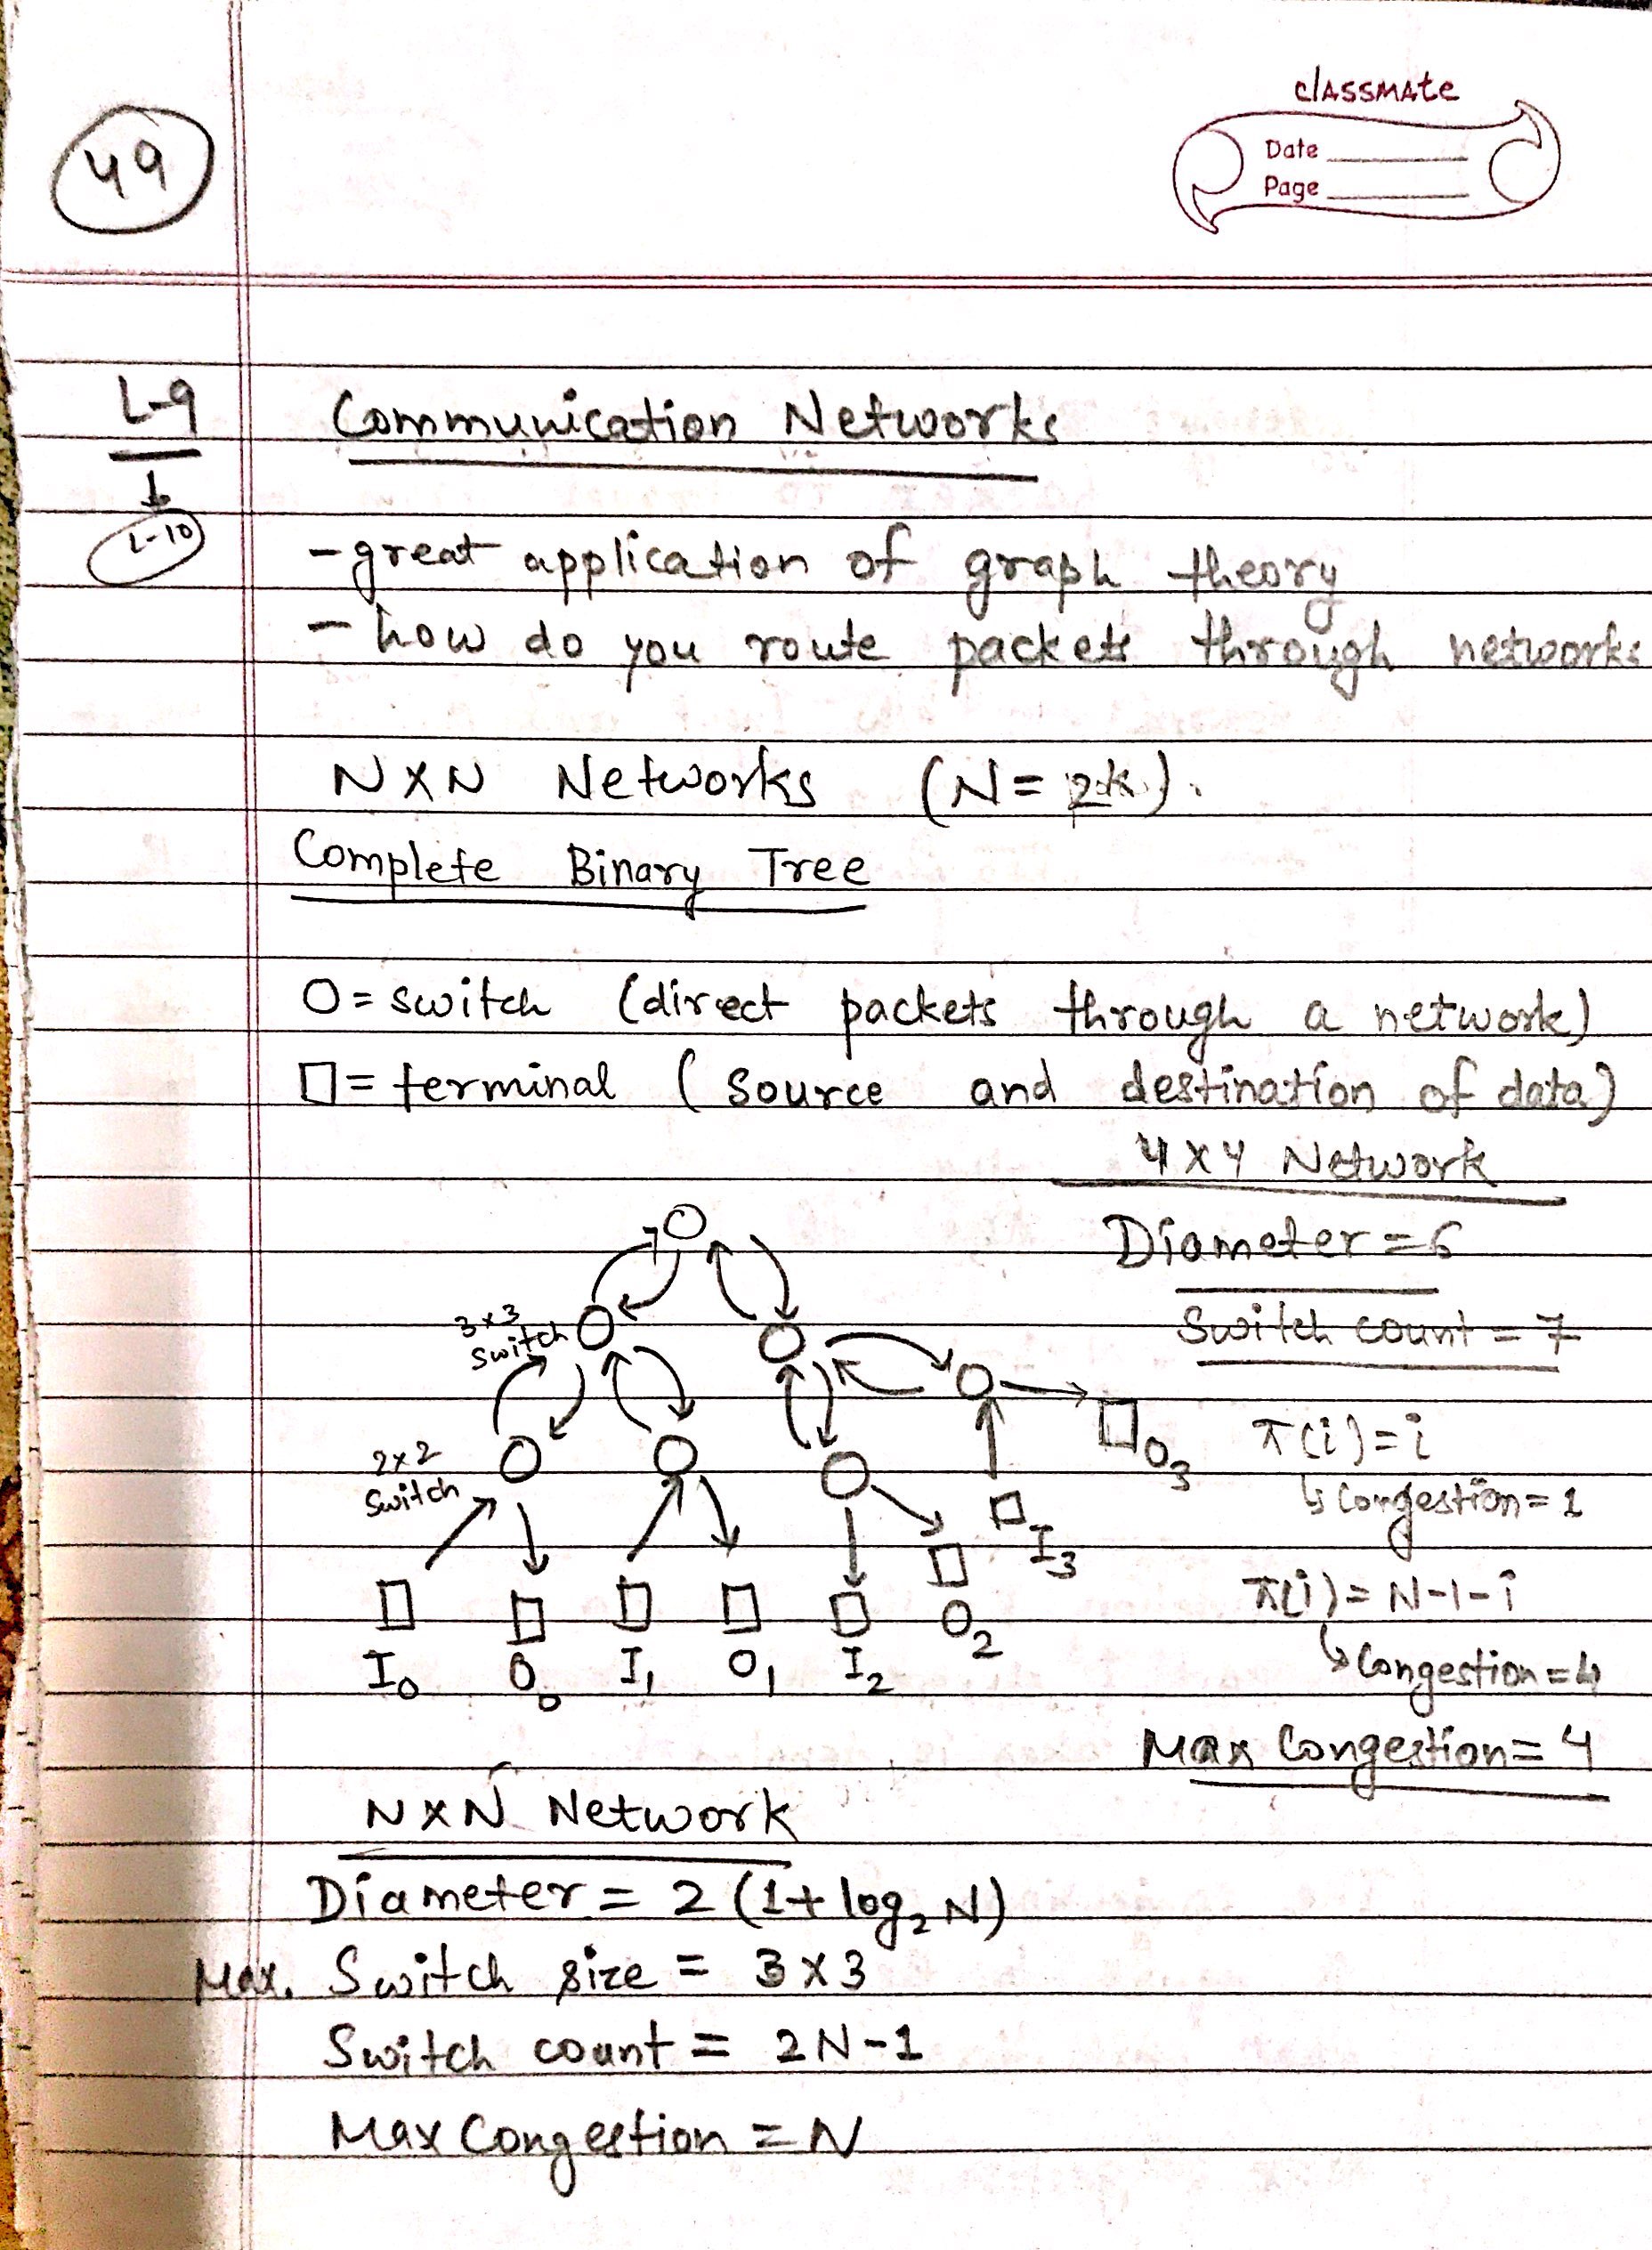 classmate
Date
Page
49
L-9 Communication Networks
L-10
- great application of graph theory
- how do you route packets through networks
N×N Networks (N= 2^k).
Complete Binary Tree
O = switch (direct packets through a network)
□ = terminal (source and destination of data)
4×4 Network
Diameter = 6
Switch count = 7
3×3
switch
2×2
switch
π(i) = i
↳ Congestion = 1
π(i) = N-1-i
↳ Congestion = 4
Max Congestion = 4
O₃
I₃
I₀ O₀ I₁ O₁ I₂ O₂
N×N Network
Diameter = 2 (1+ log₂ N)
Max. Switch size = 3×3
Switch count = 2N-1
Max Congestion = N